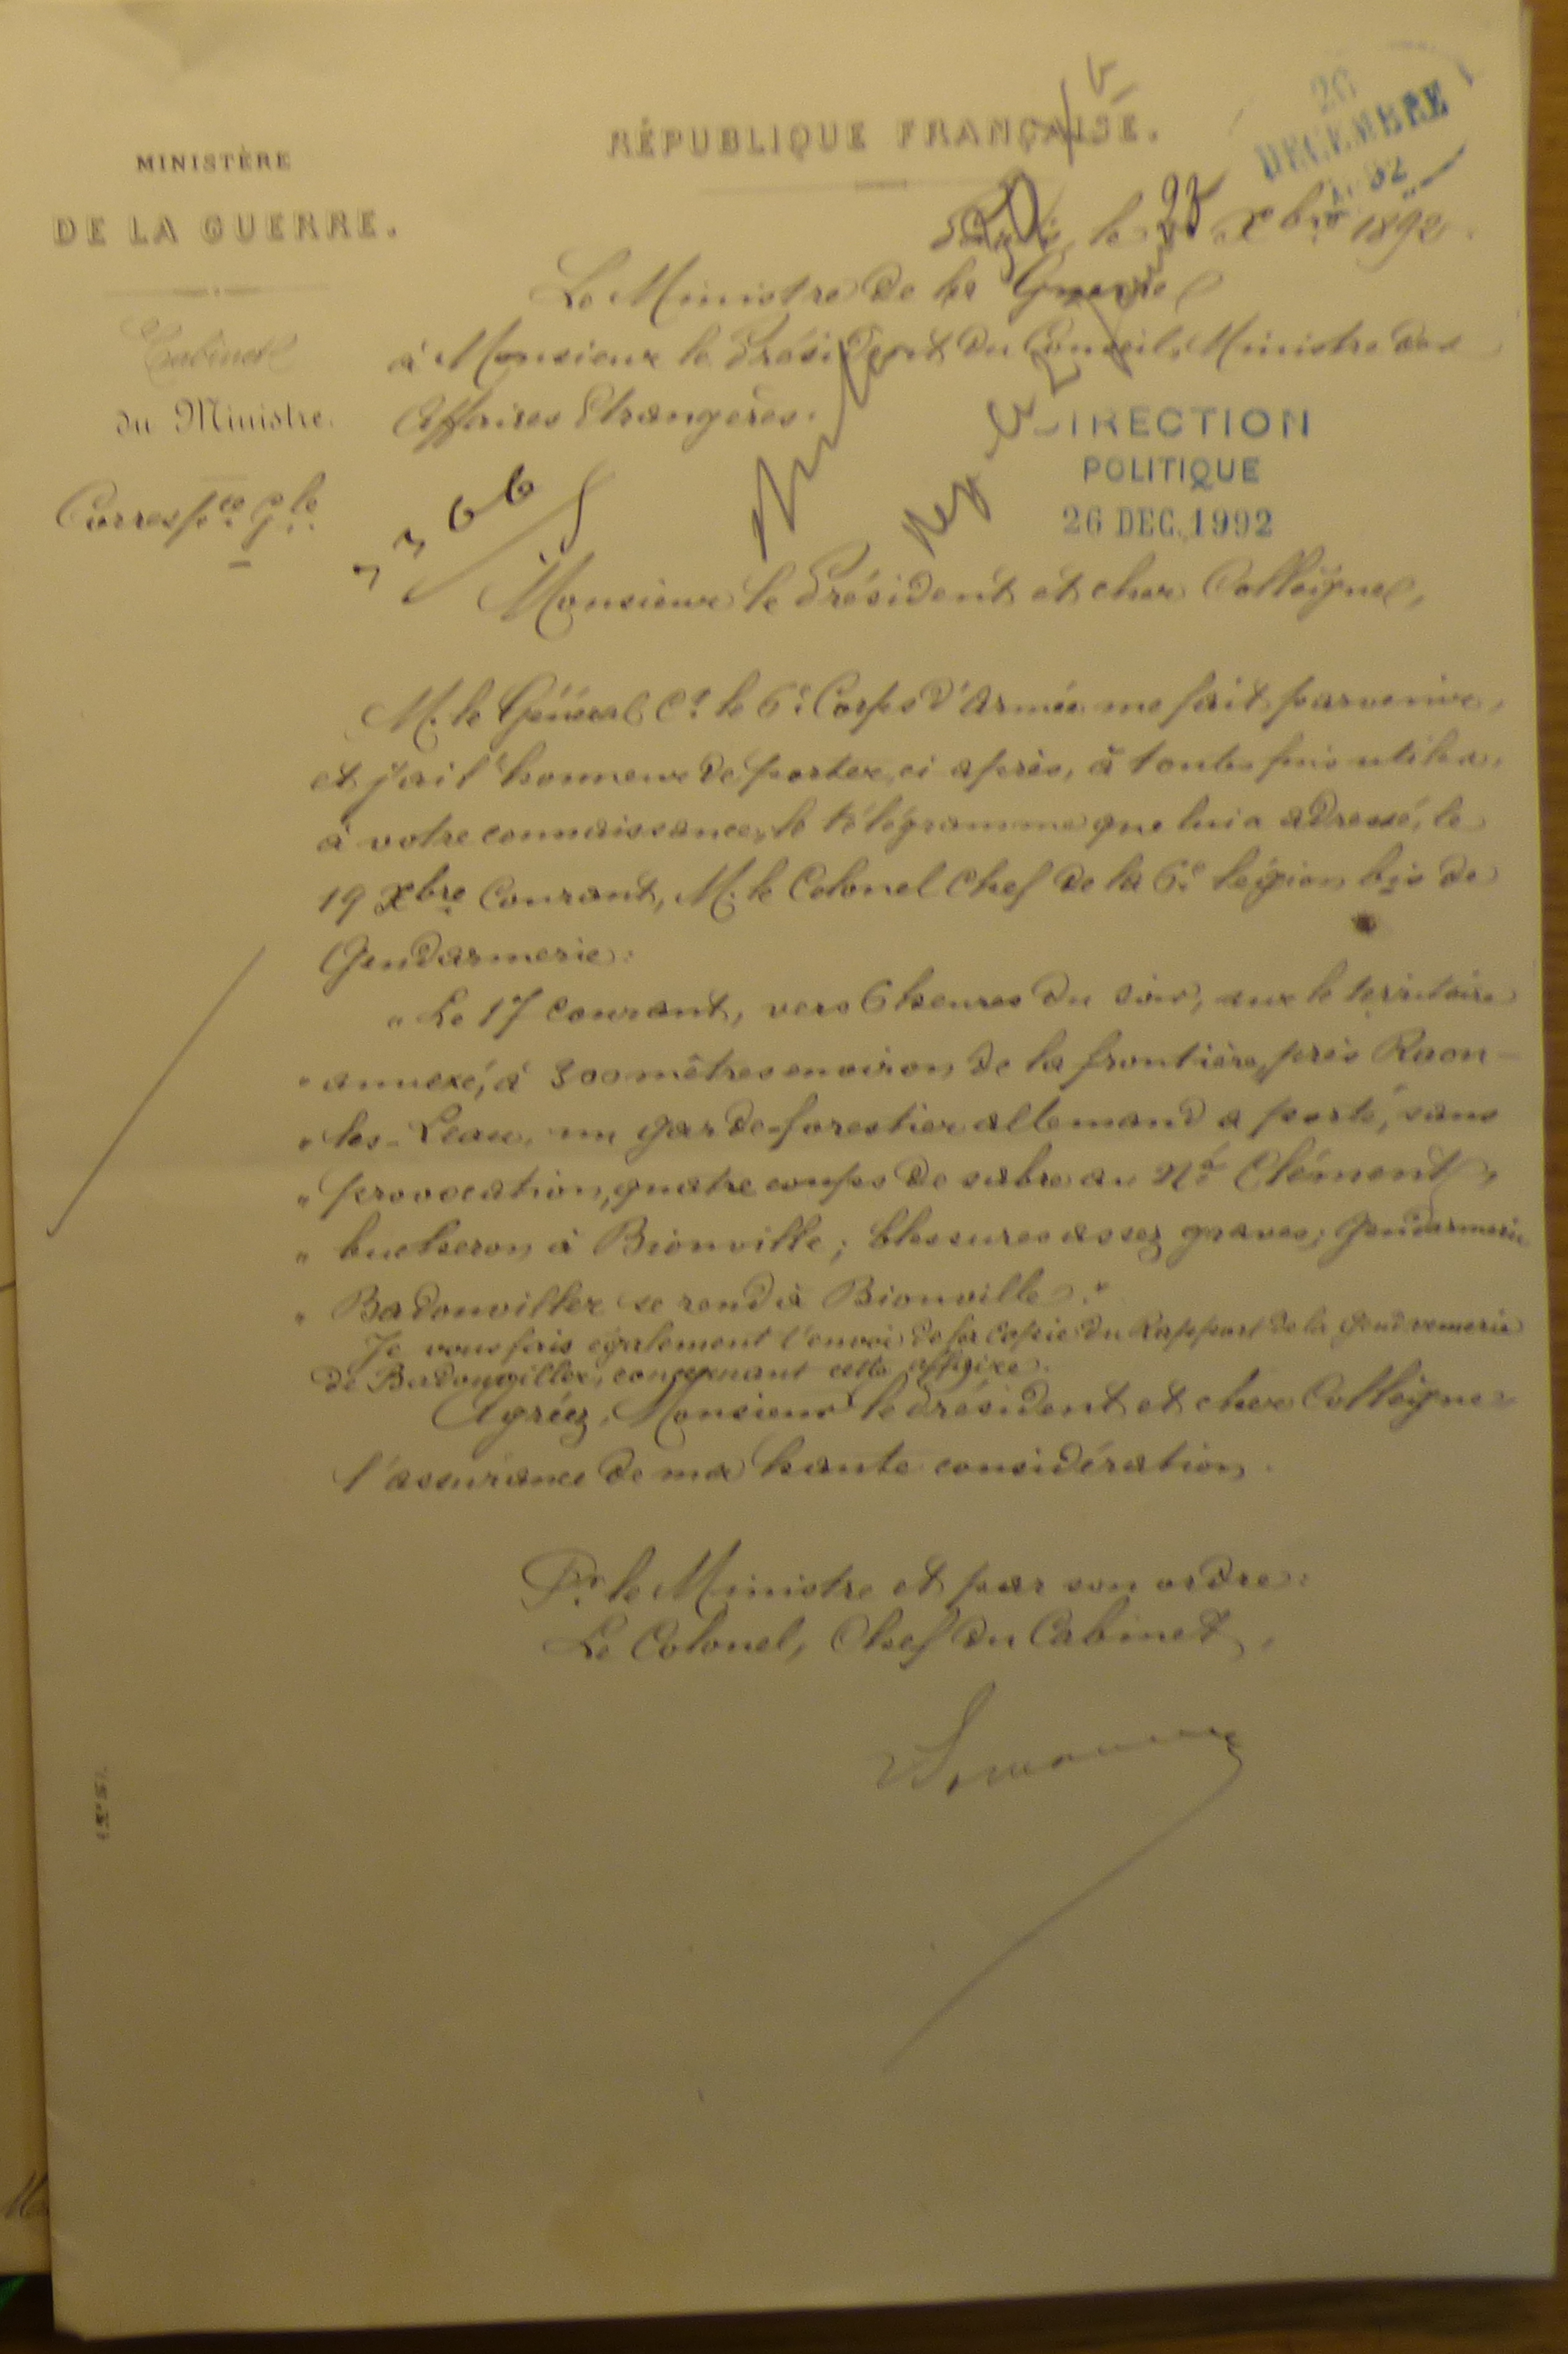 RÉPUBLIQUE FRANÇAISE.
26
DECEMBRE
MINISTÈRE
DE LA GUERRE.
Cabinet
du Ministre.
Corresp.ce G.le
Paris, le 23 Xbre 1892.
Le Ministre de la Guerre
à Monsieur le Président du Conseil, Ministre des
Affaires Etrangères.
DIRECTION
POLITIQUE
26 DEC. 1992
Monsieur le Président et cher Collègue,
M. le Général Ct. le 6e. Corps d'Armée me fait parvenir,
et j'ai l'honneur de porter, ci après, à toutes fins utiles,
à votre connaissance, le télégramme que lui a adressé, le
19 Xbre Courant, M. le Colonel Chef de la 6e. légion bis de
Gendarmerie:
" Le 17 courant, vers 6 heures du soir, sur le territoire
" annexé, à 300 mètres environ de la frontière, près Raon-
" les-Leau, un garde-forestier allemand a porté, sans
" provocation, quatre coups de sabre au Né Clément,
" bucheron à Bionville; blessures assez graves; Gendarmerie
" Badonviller se rend à Bionville."
Je vous fais également l'envoi de la Copie du Rapport de la Gendarmerie
de Badonviller, concernant cette affaire.
Agréez, Monsieur le Président et cher Collègue
l'assurance de ma haute considération.
Pr. le Ministre et par son ordre:
Le Colonel, Chef du Cabinet,